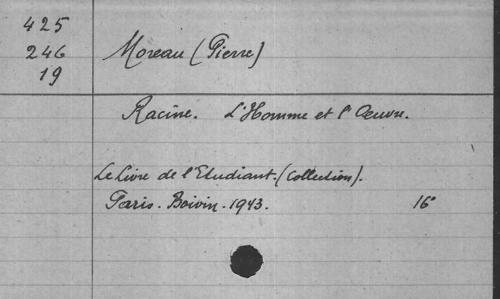 425
246
19
Moreau (Pierre)
Racine. L'Homme et l'Oeuvre.
Le Livre de l'Etudiant. (Collection).
Paris. Boivin. 1943. 16°